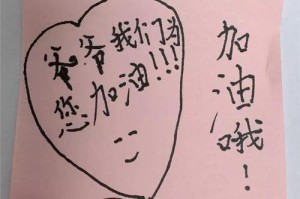 爷爷我们为
您加油!!!
加油哦!